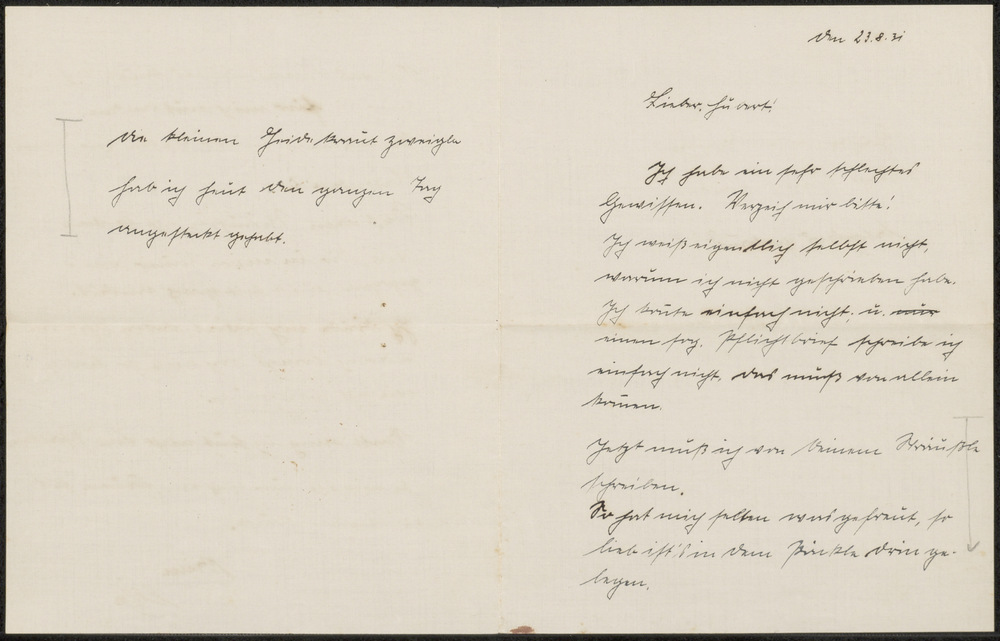 den 23.8.31
Lieber Hubert!
Ich habe ein sehr schlechtes
Gewissen. Verzeih mir bitte!
Ich weiß eigentlich selbst nicht,
warum ich nicht geschrieben habe.
Ich konnte einfach nicht, u. nur
einen sog. Pflichtbrief schreibe ich
einfach nicht, das muß von allein
kommen.
Jetzt muß ich von Deinem Sträußle
schreiben.
So hat mich selten was gefreut, so
lieb ist's in dem Päckle drin ge-
legen.
Die kleinen Heidekrautzweigle
hab ich heut den ganzen Tag
angesteckt gehabt.